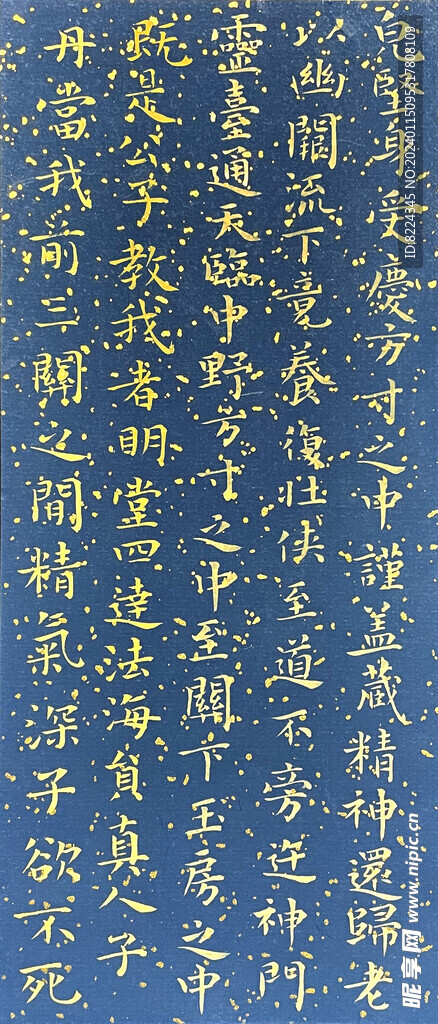 堅身受慶方寸之中謹盖藏精神還歸老
以幽闕流下竟養復壯侠至道不旁迕神門
靈臺通天臨中野方寸之中至關下玉房之中
既是公子教我者明堂四達法海員真人子
丹當我前三關之間精氣深子欲不死
ID:8224345 NO:20240115095317808109
昵享网 www.nipic.cn